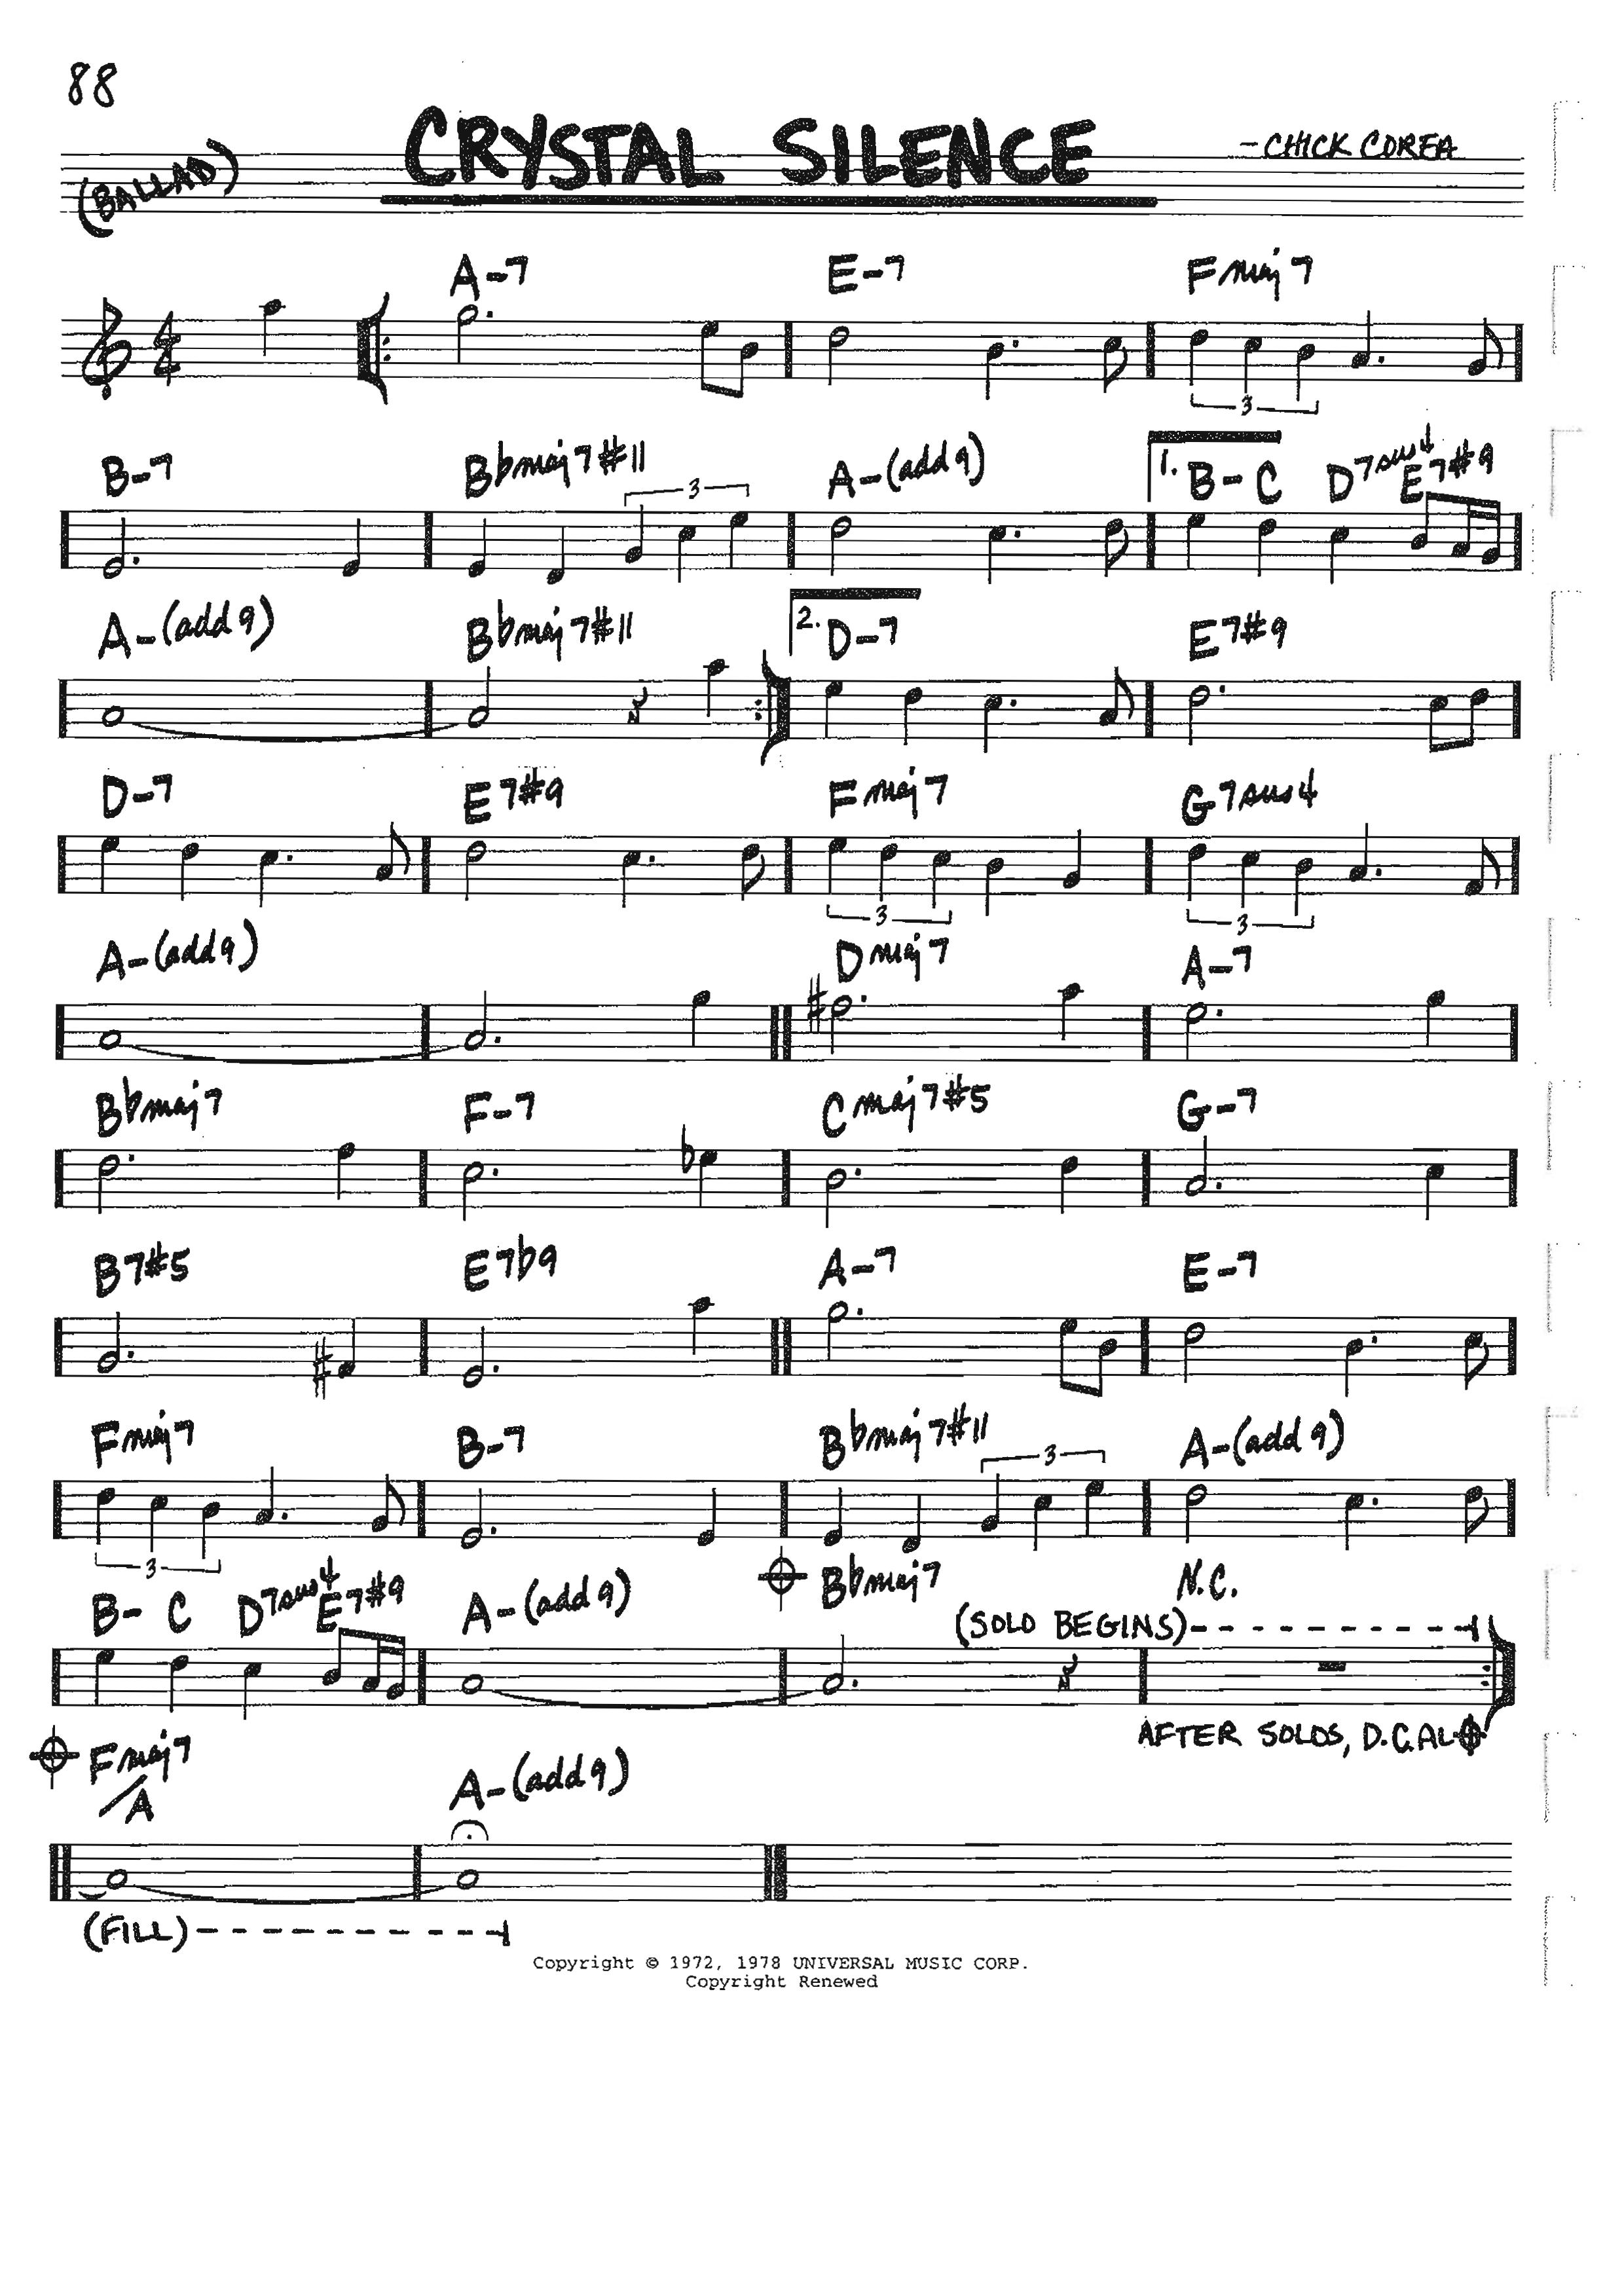 88
(BALLAD)
CRYSTAL SILENCE
- CHICK COREA
A-7 E-7 Fmaj7
3
B-7 Bbmaj7#11 A-(add9) 1. B- C D7sus4 E7#9
3
A-(add9) Bbmaj7#11 2. D-7 E7#9
D-7 E7#9 Fmaj7 G7sus4
3 3
A-(add9) Dmaj7 A-7
Bbmaj7 F-7 Cmaj7#5 G-7
B7#5 E7b9 A-7 E-7
Fmaj7 B-7 Bbmaj7#11 A-(add9)
3
3
B- C D7sus4 E7#9 A-(add9) Bbmaj7 N.C.
(SOLO BEGINS)
AFTER SOLOS, D.C. AL
Fmaj7/A A-(add9)
(FILL)
Copyright © 1972, 1978 UNIVERSAL MUSIC CORP.
Copyright Renewed